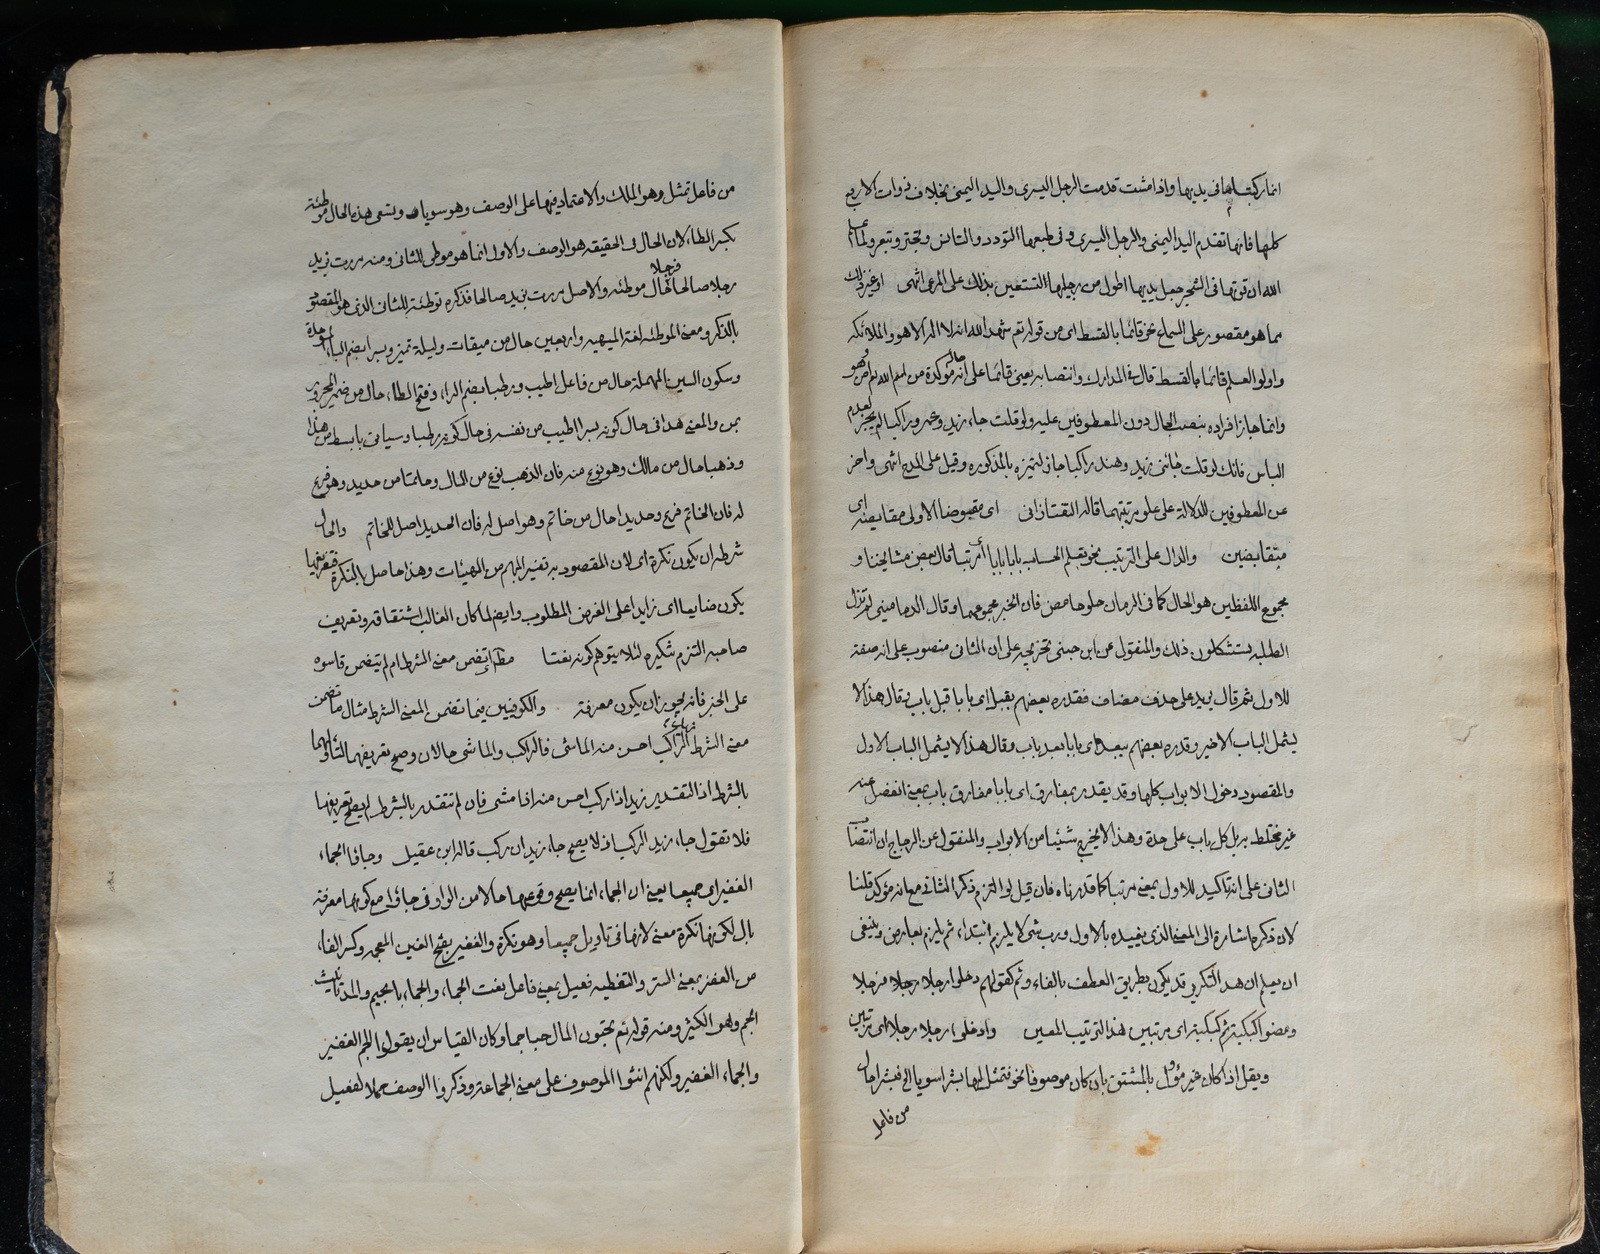 انما ركبتاها في يديها واذا مشت قدمت الرجل اليسرى واليد اليمنى بخلاف ذوات الاربع
كلها فانها تقدم اليد اليمنى والرجل اليسرى وفي طبعها التودد والتانس وتجتر وتبعر ولما علم
الله ان قوتها في الشجر جعل يديها اطول من رجليها لتستعين بذلك على الرعي انتهى او غير ذلك
مما هو مقصور على السماع نحو قائما بالقسط اي من قوله تع شهد الله انه لا اله الا هو والملائكه
واولو العلم قائما بالقسط قال في المدارك وانتصابه يعني قائما على انه حال موكدة من اسم الله تع او هو
وانما جاز افراده بنصب الحال دون المعطوفين عليه ولو قلت جاء زيد وعمرو راكبا لم يجز لعدم
الباس فانك لو قلت جائني زيد وهند راكبا جاز لتميزه بالذكوره وقيل على المدح انتهى واخر
عن المعطوفين للدلالة على علو مرتبتهما قاله التفتازاني اي مقبوضا الاولى مقابضه اي
متقابضين والدال على الترتيب نحو تعلم الحساب بابا بابا اي مرتبا قال بعض مشايخنا و
مجموع اللفظين هو الحال كما في الرمان حلو حامض فان الخبر مجموعهما وقال الدماميني لم تزل
الطلبه يستشكلون ذلك والمنقول عن ابن جني تخريجه على ان الثاني منصوب على انه صفة
للاول ثم قال يريد على حذف مضاف فقدره بعضهم بقبل اي بابا قبل باب وقال هذا لا
يشمل الباب الاخير وقدره بعضهم ببعد اي بابا بعد باب وقال هذا لا يشمل الباب الاول
والمقصود دخول الابواب كلها وقد يقدر بمفارق اي بابا مفارق باب بمعنى انفصل عنه
غير مختلط به بل كل باب على حدة وهذا لا يخرج شيئا من الابواب والمنقول عن الزجاج ان انتصاب
الثاني على انه تاكيد للاول بمعنى مرتبا كما قدرناه فان قيل لو التزم ذكر الثاني مع انه مؤكد قلنا
لان ذكره اشارة الى المعنى الذي يفيده بالاول ورب شي لا يلزم ابتداء ثم يلزم بعارض وينبغي
ان يعلم ان هذا التكرير قد يكون بطريق العطف بالفاء وثم كقولهم دخلوا رجلا رجلا فرجلا
ومضوا كبكبة ثم كبكبة اي مرتبين هذا الترتيب المعين وادخلوا رجلا رجلا اي مرتبين
ويقل اذا كان غير مؤول بالمشتق بان كان موصوفا نحو فتمثل لها بشرا سويا الخ فبشرا حال
من فاعل
من فاعل تمثل وهو الملك والاعتماد فيها على الوصف وهو سويا وتسمى هذه الحال موطئة
بكسر الطاء لان الحال في الحقيقه هو الوصف والاول انما هو موطي للثاني ومنه مررت بزيد
رجلا صالحا فرجلا حال موطئه والاصل مررت بزيد صالحا فذكره توطئة للثاني الذي هو المقصود
بالذكر ومعنى الموطئه لغة المهيئه واربعين حال من ميقات وليلة تميز وبسرا بضم الباء الموحدة
وسكون السين المهملة حال من فاعل اطيب ورطبا بضم الراء وفتح الطاء حال من ضمير المجرور
بمن والمعنى هذا في حال كونه بسرا اطيب من نفسه في حال كونه رطبا وسياتي بابسط من هذا
وذهبا حال من مالك وهو نوع منه فان الذهب نوع من المال وخاتما من حديد وهو فرع
له فان الخاتم فرع وحديدا حال من خاتم وهو اصل له فان الحديد اصل للخاتم والحال
شرطه ان يكون نكرة اي لان المقصود به تفسير المبهم من الهيئات وهذا حاصل بالنكرة فتعريفها
يكون ضايعا اي زايدا على الغرض المطلوب وايضا لما كان الغالب اشتقاقه وتعريف
صاحبه التزم تنكيره لئلا يتوهم كونه نعتا مطلقا تضمن معنى الشرط ام لم يتضمن قاسوه
على الخبر فانه يجوز ان يكون معرفة والكوفيين فيما تضمن المعنى الشرط مثال ما تضمن
معنى الشرط زيد الراكب احسن منه الماشي فالراكب والماشي حالان وصح تعريفهما لتاولهما
بالشرط اذ التقدير زيد اذا ركب احسن منه اذا مشى فان لم تتقدر بالشرط لم يصح تعريفها
فلا تقول جاء زيد الراكب اذ لا يصح جاء زيد ان ركب قاله ابن عقيل وجاؤا الجماء
الغفير اي جميعا يعني ان الجماء انما يصح وقوعها حالا من الواو في جاؤا مع كونها معرفة
بال لكونها نكرة معنى لانها في تاويل جميعا وهو نكرة والغفير بفتح الغين المعجمه وكسر الفاء
من الغفر بمعنى الستر والتغطيه فعيل بمعنى فاعل نعت الجماء والجماء بالجيم والمد تانيث
الجم وهو الكثير ومنه قوله تع تحبون المال حبا جما وكان القياس ان يقول الجم الغفير
والجماء الغفير ولكنهم انثوا الموصوف على معنى الجماعة وذكروا الوصف حملا لفعيل